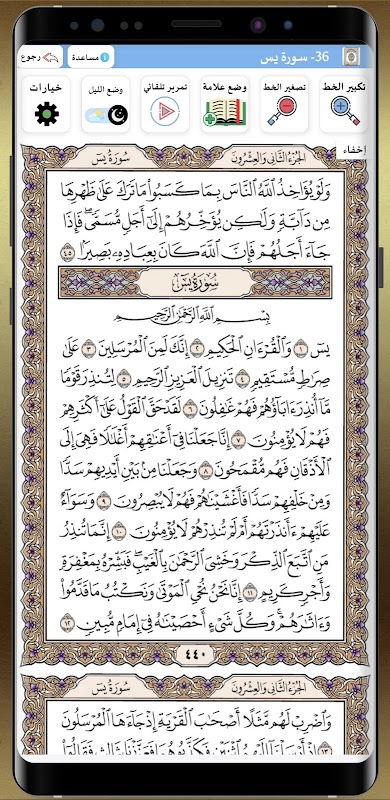 36- سورة يس
مساعدة
رجوع
تكبير الخط
تصغير الخط
وضع علامة
تمرير تلقائي
وضع الليل
خيارات
إخفاء
الجزء الثاني والعشرون
سورة يس
وَلَوْ يُؤَاخِذُ ٱللَّهُ ٱلنَّاسَ بِمَا كَسَبُوا۟ مَا تَرَكَ عَلَىٰ ظَهْرِهَا
مِن دَآبَّةٍ وَلَـٰكِن يُؤَخِّرُهُمْ إِلَىٰٓ أَجَلٍ مُّسَمًّى ۖ فَإِذَا
جَآءَ أَجَلُهُمْ فَإِنَّ ٱللَّهَ كَانَ بِعِبَادِهِۦ بَصِيرًۢا ٤٥
سُورَةُ يسٓ
بِسْمِ ٱللَّهِ ٱلرَّحْمَـٰنِ ٱلرَّحِيمِ
يسٓ ١ وَٱلْقُرْءَانِ ٱلْحَكِيمِ ٢ إِنَّكَ لَمِنَ ٱلْمُرْسَلِينَ ٣ عَلَىٰ
صِرَٰطٍ مُّسْتَقِيمٍ ٤ تَنزِيلَ ٱلْعَزِيزِ ٱلرَّحِيمِ ٥ لِتُنذِرَ قَوْمًا
مَّآ أُنذِرَ ءَابَآؤُهُمْ فَهُمْ غَـٰفِلُونَ ٦ لَقَدْ حَقَّ ٱلْقَوْلُ عَلَىٰٓ أَكْثَرِهِمْ
فَهُمْ لَا يُؤْمِنُونَ ٧ إِنَّا جَعَلْنَا فِىٓ أَعْنَـٰقِهِمْ أَغْلَـٰلًا فَهِىَ إِلَى
ٱلْأَذْقَانِ فَهُم مُّقْمَحُونَ ٨ وَجَعَلْنَا مِنۢ بَيْنِ أَيْدِيهِمْ سَدًّا
وَمِنْ خَلْفِهِمْ سَدًّا فَأَغْشَيْنَـٰهُمْ فَهُمْ لَا يُبْصِرُونَ ٩ وَسَوَآءٌ
عَلَيْهِمْ ءَأَنذَرْتَهُمْ أَمْ لَمْ تُنذِرْهُمْ لَا يُؤْمِنُونَ ١٠ إِنَّمَا تُنذِرُ
مَنِ ٱتَّبَعَ ٱلذِّكْرَ وَخَشِىَ ٱلرَّحْمَـٰنَ بِٱلْغَيْبِ ۖ فَبَشِّرْهُ بِمَغْفِرَةٍ
وَأَجْرٍ كَرِيمٍ ١١ إِنَّا نَحْنُ نُحْىِ ٱلْمَوْتَىٰ وَنَكْتُبُ مَا قَدَّمُوا۟
وَءَاثَـٰرَهُمْ ۚ وَكُلَّ شَىْءٍ أَحْصَيْنَـٰهُ فِىٓ إِمَامٍ مُّبِينٍ ١٢
٤٤٠
الجزء الثاني والعشرون
سورة يس
وَٱضْرِبْ لَهُم مَّثَلًا أَصْحَـٰبَ ٱلْقَرْيَةِ إِذْ جَآءَهَا ٱلْمُرْسَلُونَ
١٣ إِذْ أَرْسَلْنَآ إِلَيْهِمُ ٱثْنَيْنِ فَكَذَّبُوهُمَا فَعَزَّزْنَا بِثَالِثٍ فَقَالُوٓا۟